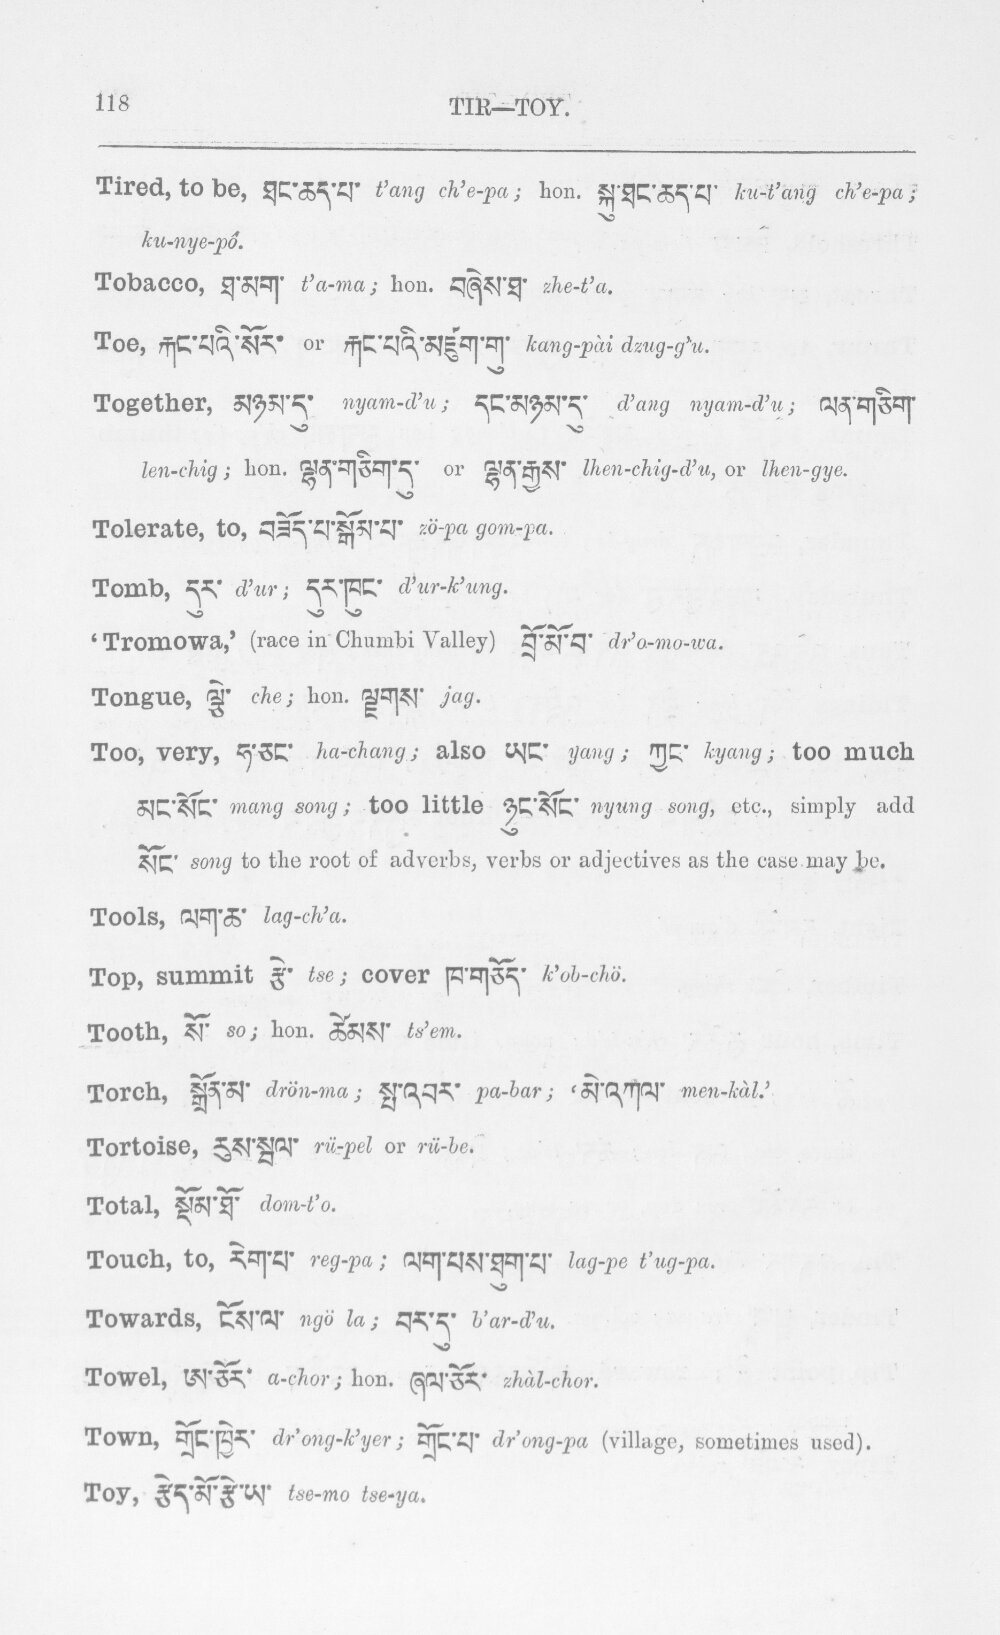 118
TIR—TOY.
Tired, to be, ཐང་ཆད་པ་ t'ang ch'e-pa; hon. སྐུ་ཐང་ཆད་པ་ ku-t'ang ch'e-pa;
ku-nye-pó.
Tobacco, ཐ་མག་ t'a-ma; hon. བཞེས་ཐ་ zhe-t'a.
Toe, རྐང་པའི་སོར་ or རྐང་པའི་མཛུག་གུ་ kang-pài dzug-g'u.
Together, མཉམ་དུ་ nyam-d'u; དང་མཉམ་དུ་ d'ang nyam-d'u; ལན་གཅིག་
len-chig; hon. ལྷན་གཅིག་དུ་ or ལྷན་རྒྱས་ lhen-chig-d'u, or lhen-gye.
Tolerate, to, བཟོད་པ་སྒོམ་པ་ zö-pa gom-pa.
Tomb, དུར་ d'ur; དུར་ཁུང་ d'ur-k'ung.
‘Tromowa,’ (race in Chumbi Valley) གྲོ་མོ་བ་ dr'o-mo-wa.
Tongue, ལྕེ་ che; hon. ལྗགས་ jag.
Too, very, ཧ་ཅང་ ha-chang; also ཡང་ yang; ཀྱང་ kyang; too much
མང་སོང་ mang song; too little ཉུང་སོང་ nyung song, etc., simply add
སོང་ song to the root of adverbs, verbs or adjectives as the case may be.
Tools, ལག་ཆ་ lag-ch'a.
Top, summit རྩེ་ tse; cover ཁ་གཅོད་ k'ob-chö.
Tooth, སོ་ so; hon. ཚེམས་ ts'em.
Torch, སྒྲོན་མ་ drön-ma; སྤ་འབར་ pa-bar; ‘མེ་འཀལ་ men-kàl.’
Tortoise, རུས་སྦལ་ rü-pel or rü-be.
Total, སྡོམ་ཐོ་ dom-t'o.
Touch, to, རེག་པ་ reg-pa; ལག་པས་ཐུག་པ་ lag-pe t'ug-pa.
Towards, ངོས་ལ་ ngö la; བར་དུ་ b'ar-d'u.
Towel, ཨ་ཅོར་ a-chor; hon. ཞལ་ཅོར་ zhàl-chor.
Town, གྲོང་ཁྱེར་ dr'ong-k'yer; གྲོང་པ་ dr'ong-pa (village, sometimes used).
Toy, རྩེད་མོ་རྩེ་ཡ་ tse-mo tse-ya.